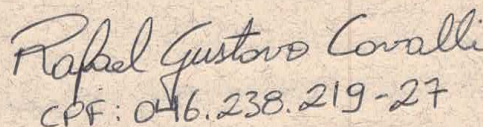 Rafael Gustavo Cavalli
CPF: 046.238.219-27